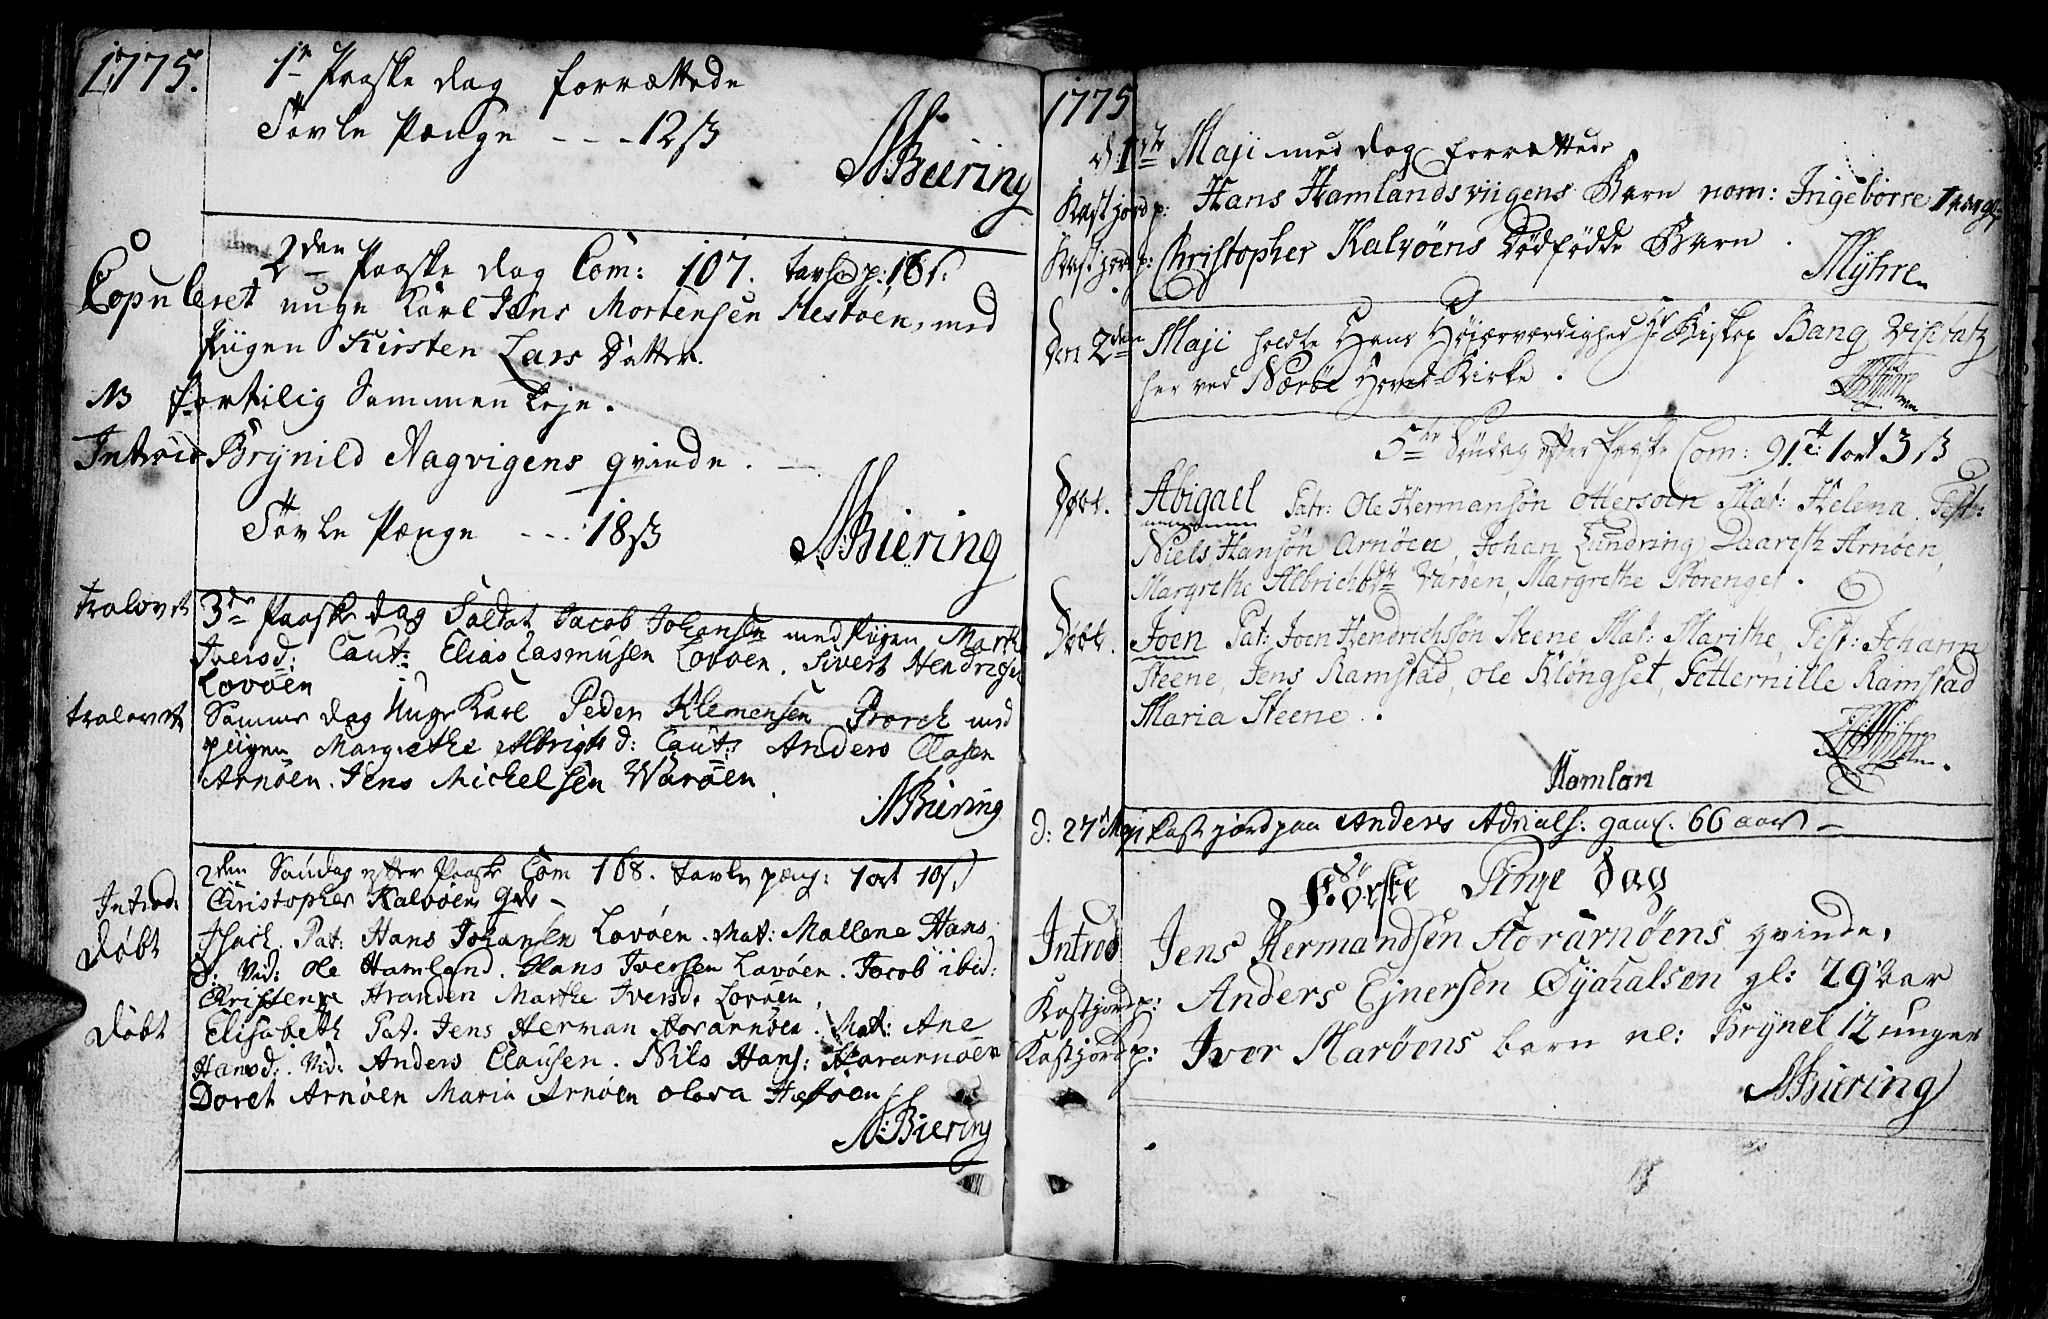 1775.
1te Paaske dag forrættede
Tavle Penge - - - 12 ß
N Biering
2den Paaske dag Com: 107. tavle p: 16 s.
Copuleret unge Karl Jens Mortensen Hestöen, med
Piigen Kirsten Lars Datter.
NB fortilig Sammen Leje.
Introd Brynild Aagvigens qvinde.
Tavle Penge - - - 18 ß
N Biering
trolovet 3de Paaske dag Soldat Jacob Johansen med Piigen Marthe
Iversd: Caut: Elias Rasmusen Lovöen. Sivert Hendrichs
Lovöen
trolovet Samme dag Unge Karl Peder Klemensen med
piigen Margrethe Albrigts d: Caut: Anders Olasen
Arnöen. Jens Michelsen Waröen.
N Biering
2den Söndag efter Paaske Com 168. tavle peng: 1 ort 10 s.
Introd. Christopher Kalvöens
Döbt Isach. Pat: Hans Johansen Lovöen. Mat: Mallene Hans
d: Vid: Ole Hamland. Hans Iversen Lovöen. Jacob ibid:
Marthe Iversd. Lovöen.
Döbt Elisabeth Pat. Jens Herman Storarnöen. Mat: Ane
Hansd: Vid: Anders Clausen. Nils Hans: Storarnöen
Doret Arnöen Maria Arnöen Olava Hestöen
N: Biering
1775
d: 1ste Maji med dag forrættede
Kastjord p: Hans Hamlandsviigens Barn nom: Ingeborre
Kastjord p: Christopher Kalvöens Dödfödde Barn.
Myhre
Den 2den Maji holdte Hans Höiærværdighed Hr Biskop Bang Visitatz
her ved Næröe Hoved Kirke.
Myhre
5te Söndag efter Paaske Com: 91. 1 ort 3 ß
Döbt. Abigael Patr: Ole Hermansön Ottersöen Mat: Helena. Test:
Niels Hansön Arnöen, Johan Zundring, Daareth Arnöen,
Margrethe Albrichtsdtr Varöen, Margrethe Storenget.
Döbt. Joen Pat: Joen Hendrichsön Steene, Mat: Marithe, Test: Johann
Steene, Jens Ramstad, Ole Klöngset, Petternille Ramstad
Maria Steene.
Myhre
Hamlan
d: 27 Maji kast jord paa Anders gaml. 66 aar
Förske Pinse Dag
Introd Jens Hermandsen Storarnöens qvinde.
Kastjord p: Anders Ejnersen gl: 29 Aar
Kastjord p: Iver Maröens barn nl: Brynel 12 unger
N Biering